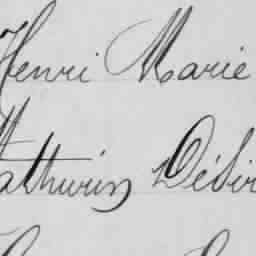 Henri Marie
Mathurin Désir